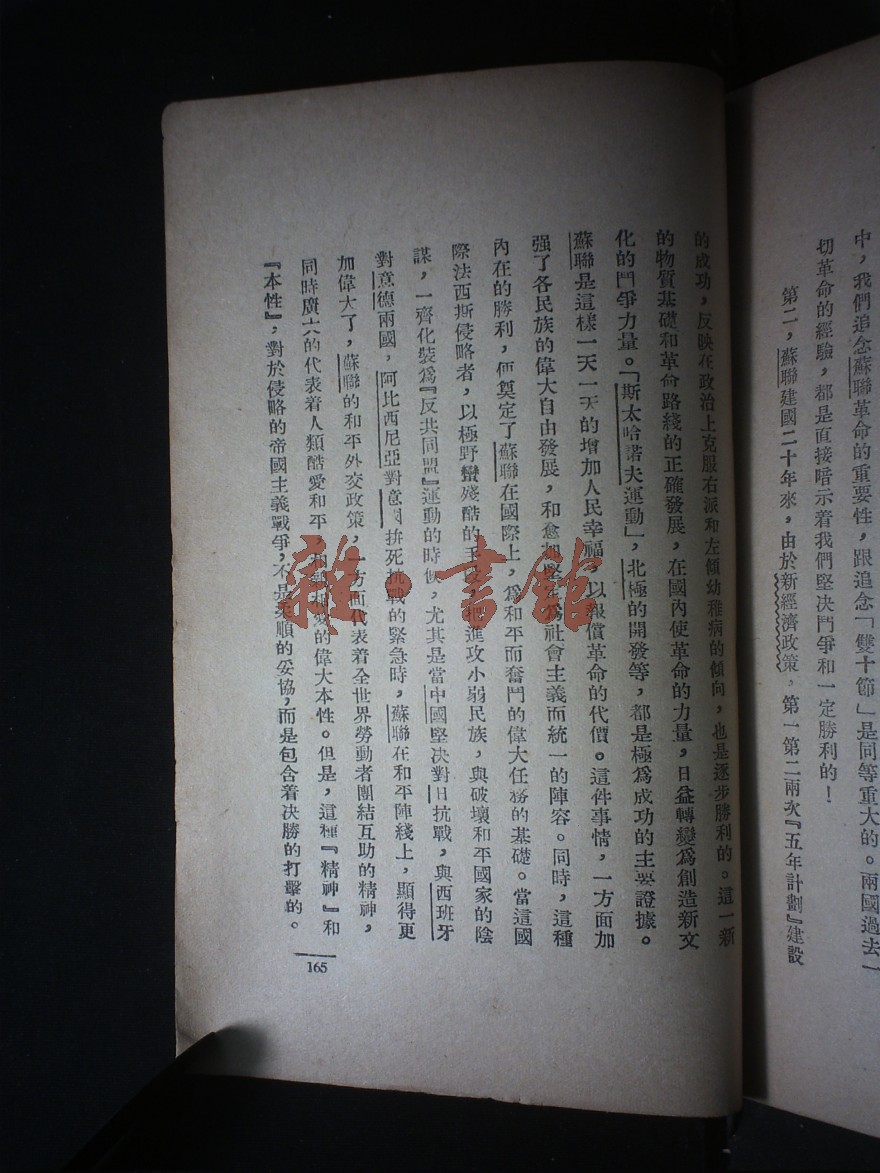 中，我們追念蘇聯革命的重要性，跟追念「雙十節」是同等重大的。兩國過去一
切革命的經驗，都是直接暗示着我們堅決鬥爭和一定勝利的！
第二，蘇聯建國二十年來，由於新經濟政策，第一第二兩次『五年計劃』建設
的成功，反映在政治上克服右派和左傾幼稚病的傾向，也是逐步勝利的。這一新
的物質基礎和革命路綫的正確發展，在國內使革命的力量，日益轉變爲創造新文
化的鬥爭力量。「斯太哈諾夫運動」，北極的開發等，都是極爲成功的主要證據。
蘇聯是這樣一天一天的增加人民幸福，以報償革命的代價。這件事情，一方面加
强了各民族的偉大自由發展，和愈加堅爲社會主義而統一的陣容。同時，這種
內在的勝利，便奠定了蘇聯在國際上，爲和平而奮鬥的偉大任務的基礎。當這國
際法西斯侵略者，以極野蠻殘酷的手進攻小弱民族，與破壞和平國家的陰
謀，一齊化裝爲『反共同盟』運動的時候，尤其是當中國堅決對日抗戰，與西班牙
對意德兩國，阿比西尼亞對意國拚死抗戰的緊急時，蘇聯在和平陣綫上，顯得更
加偉大了，蘇聯的和平外交政策，一方面代表着全世界勞動者團結互助的精神，
同時廣大的代表着人類酷愛和平，相愛的偉大本性。但是，這種『精神』和
『本性』，對於侵略的帝國主義戰爭，不是柔順的妥協，而是包含着决勝的打擊的。
165
雜·書館